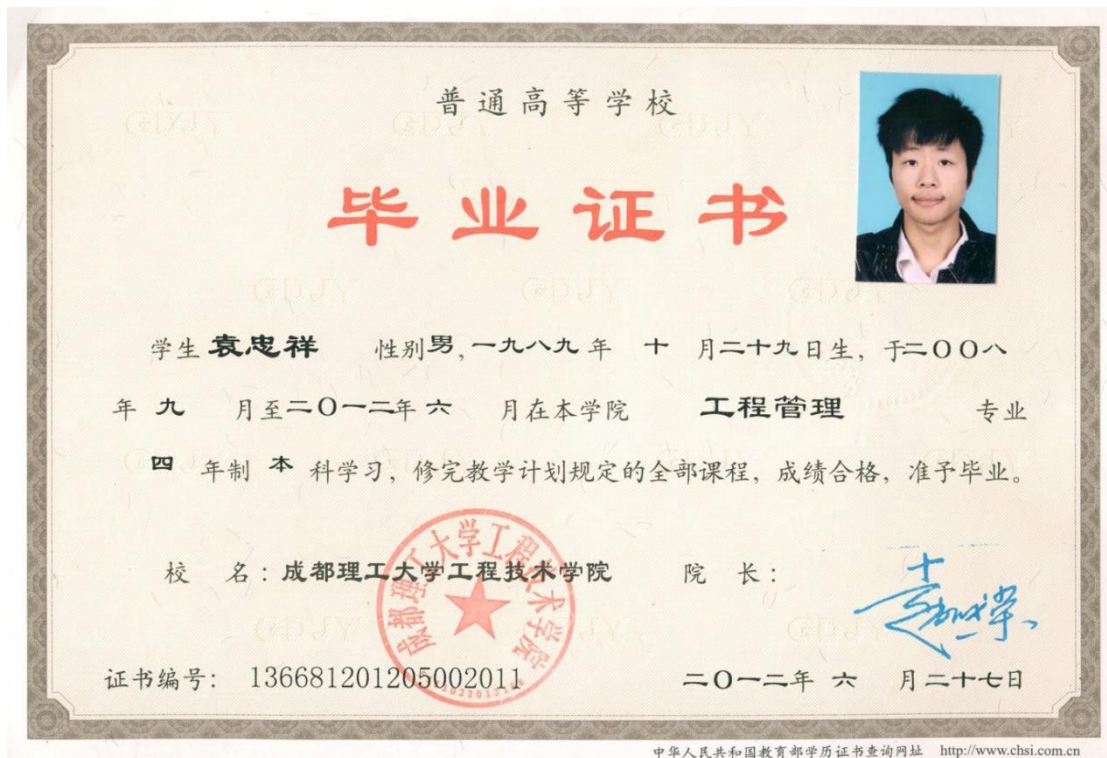 普通高等学校
毕业证书
学生 袁忠祥 性别男,一九八九年 十 月二十九日生，于二00八
年 九 月至二0一二年 六 月在本学院 工程管理 专业
四 年制 本 科学习，修完教学计划规定的全部课程，成绩合格，准予毕业。
校 名：成都理工大学工程技术学院 院 长：
成都理工大学工程技术学院
证书编号： 136681201205002011 二0一二年 六 月二十七日
中华人民共和国教育部学历证书查询网址 http://www.chsi.com.cn